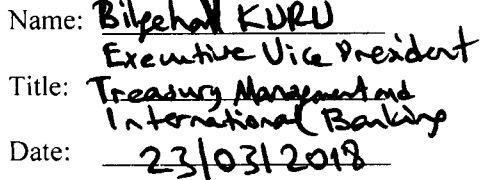 Name: Bilgehan KURU
Executive Vice President
Title: Treasury Management and
International Banking
Date: 23/03/2018